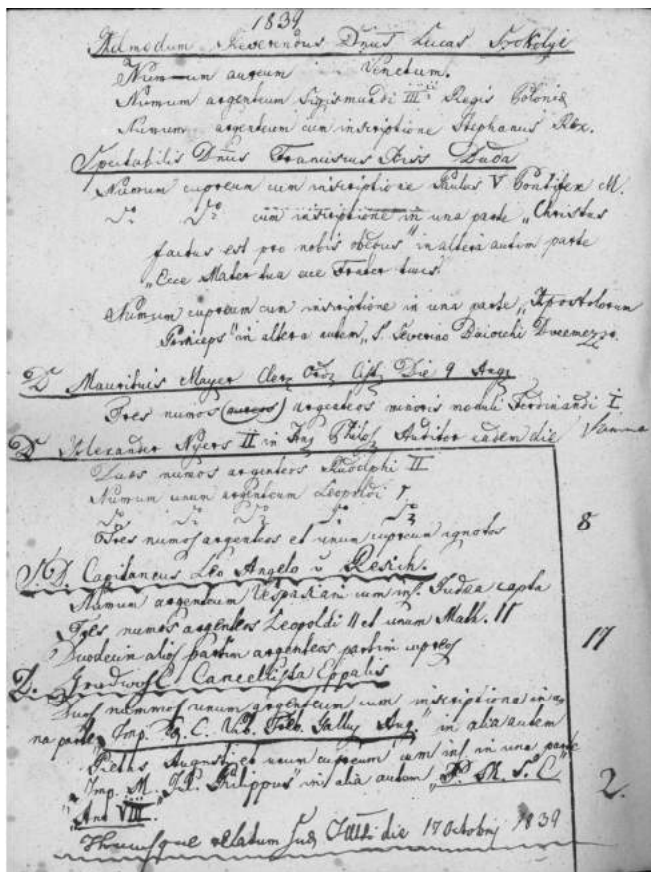 1839
Admodum Reverendus Dnus Lucas
Numum aureum Venetum.
Numum argenteum Sigismundi III Regis Poloniæ
Numum argenteum cum inscriptione Stephanus Rex.
Spectabilis Dnus Franciscus Kiss Buda
Numum cupreum cum inscriptione Paulus V Pontifex M.
do do cum inscriptione in una parte „Christus
factus est pro nobis obediens" in altera autem parte
„Ecce Mater tua ecce Frater tuus"
Numum cupreum cum inscriptione in una parte „Apostolorum
Princeps" in altera autem „S. Severino Baiocchi Dvemezzo.
D Mauritius Mayer Cler Ord Cist Die 9 Aug
Tres numos (aureos) argenteos minoris moduli Ferdinandi I
D Alexander Nyers II in Philos Auditor eadem die Summa
Duos numos argenteos Rudolphi II
Numum unum argenteum Leopoldi I
do do do do do
Tres numos argenteos et unum cupreum ignotos 8
S.D. Capitaneus Leo Angelo v Resich.
Numum argenteum Vespasiani cum ins. Judea capta
Tres numos argenteos Leopoldi II et unum Math. II
Duodecim alios partim argenteos partim cupreos 17
D. Gradwohl Cancellista Eppalis
Duos nummos unum argenteum cum inscriptione in u-
na parte „Imp. C. C. Vib. Treb. Gallus Aug." in alia autem
Pietas Augusti et unum cupreum cum ins in una parte
„Imp. M. Jul. Philippus" in alia autem „P. M. S. C 2.
„Ann VIII."
Hucusque relatum die 17 Octobris 1839